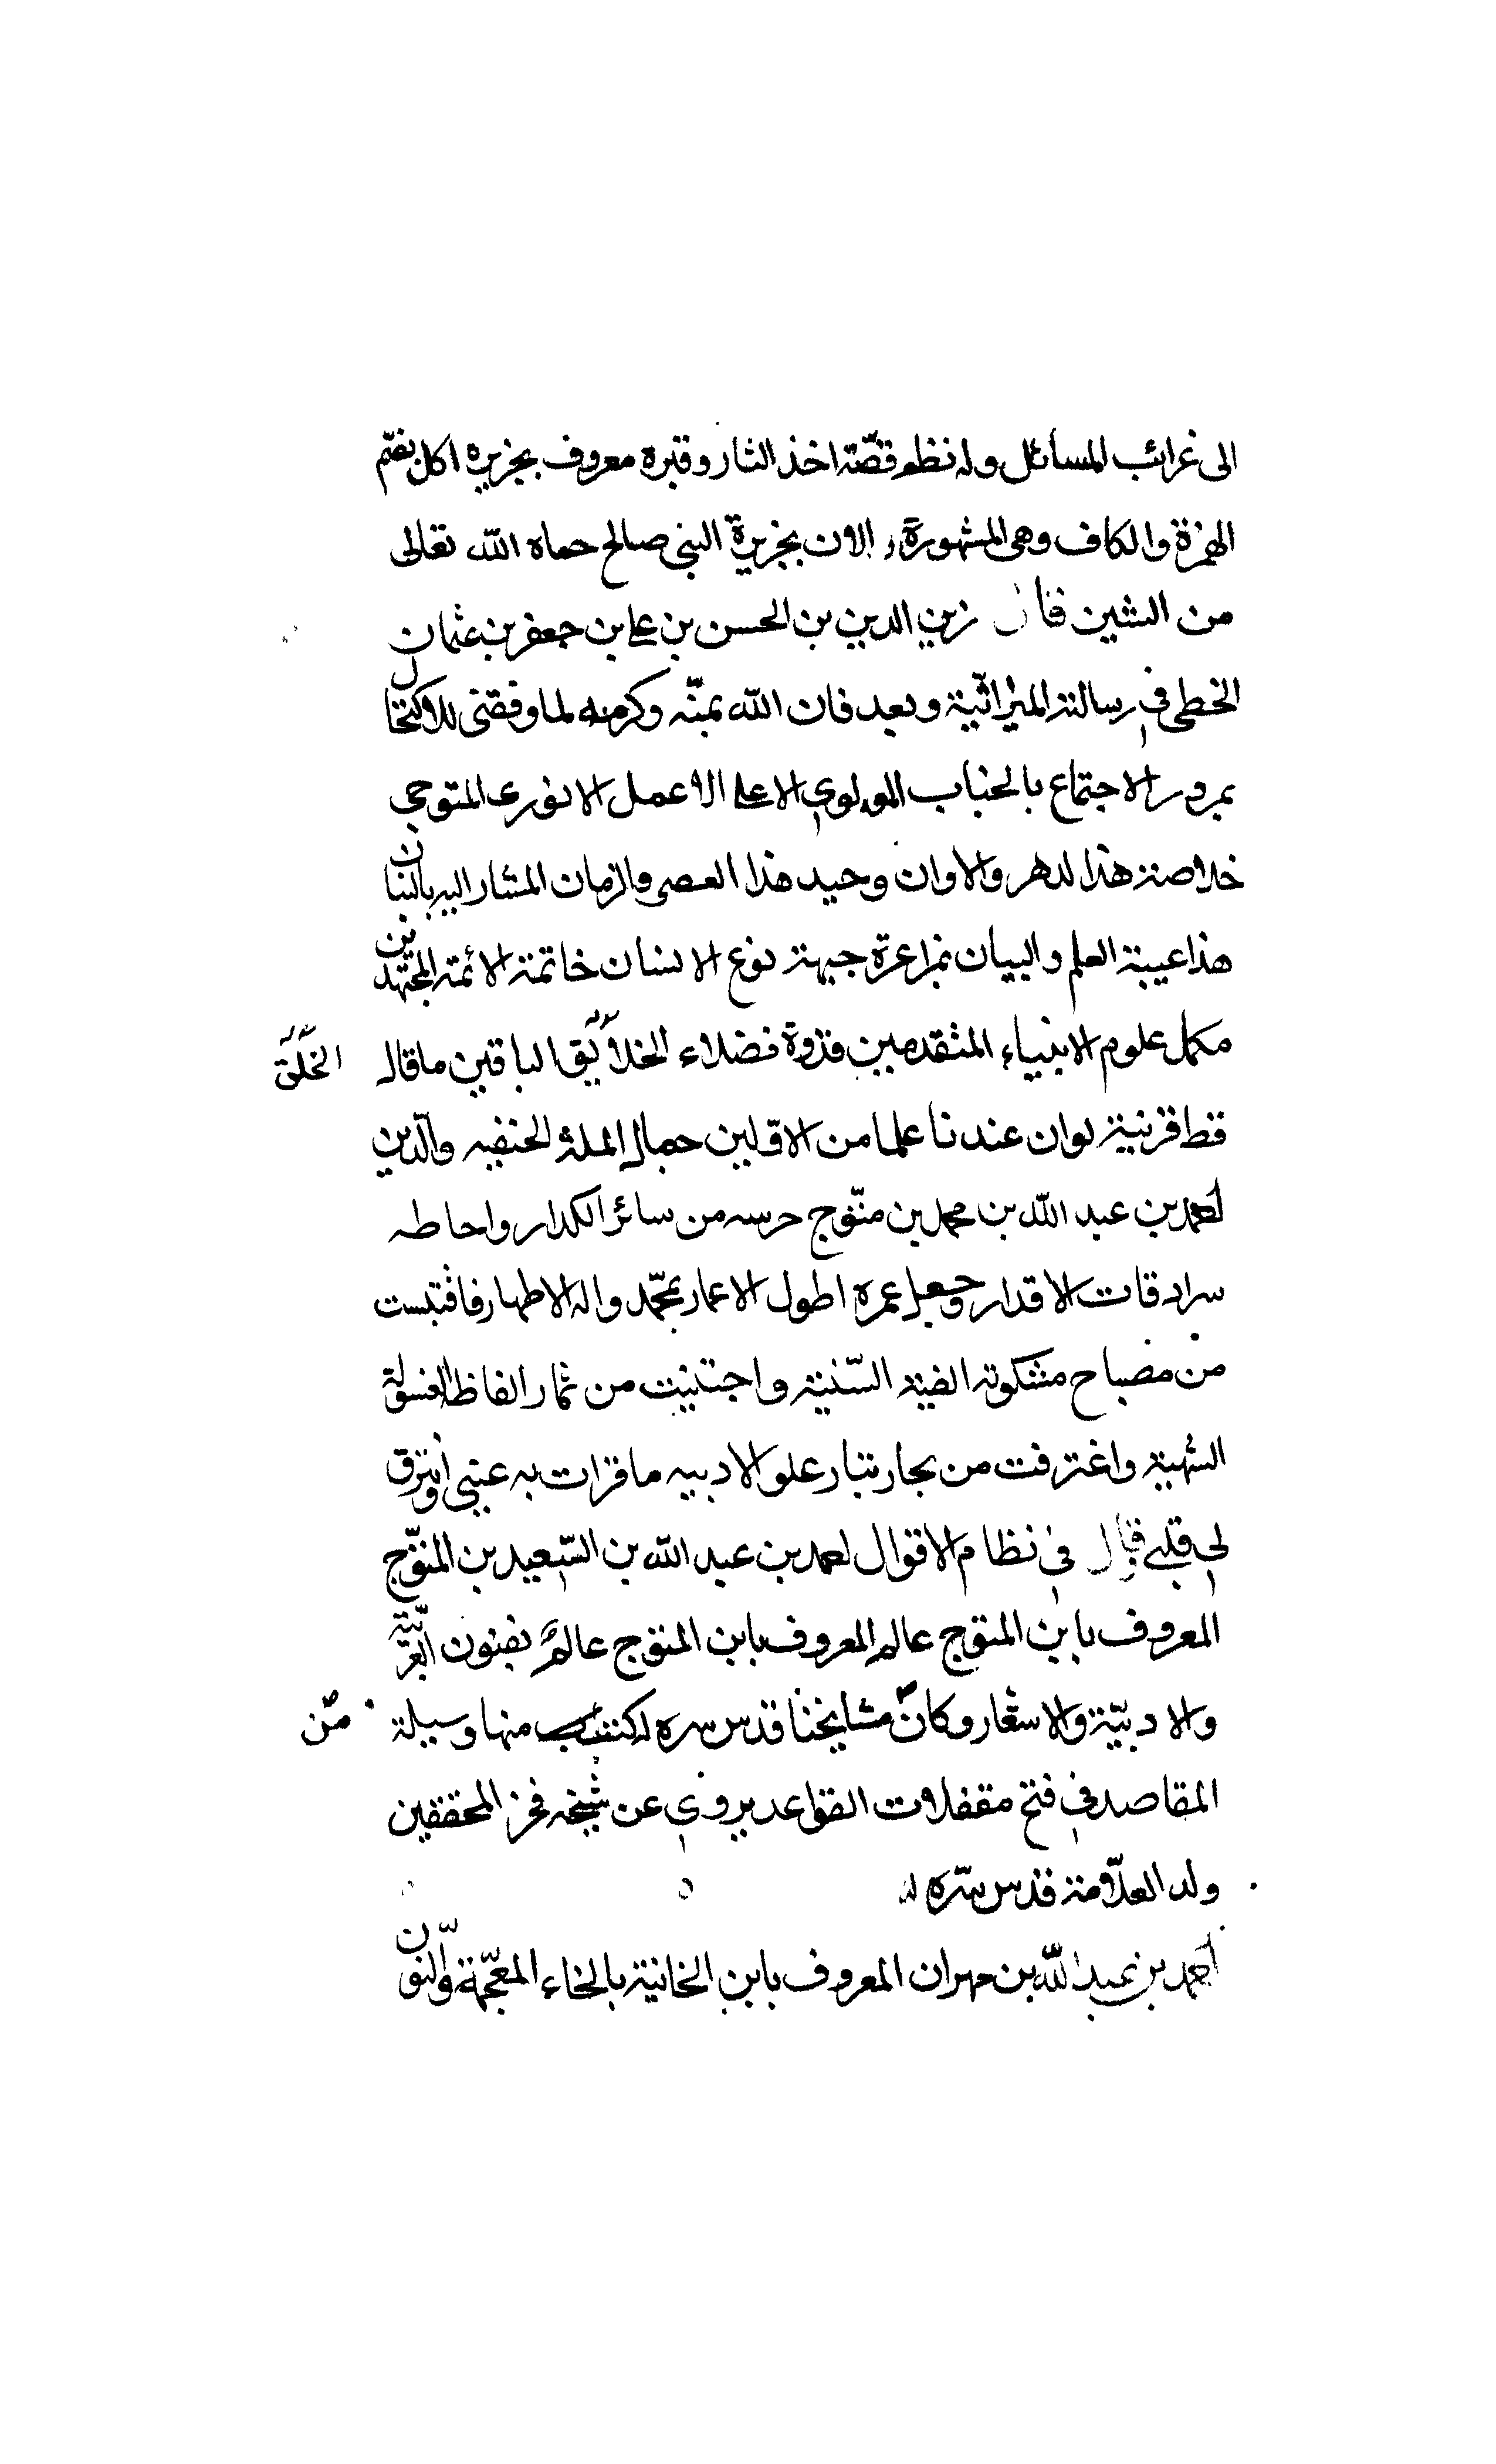 الى غرائب المسائل وله نظم قصّة اخذ الثار وقبره معروف بجزيرة اكل بضم
الهمزة والكاف وهى المشهورة الان بجزيرة النبى صالح حماه الله تعالى
من الشين قال زين الدين بن الحسن بن على بن جعفر بن عثمان
الخطى في رسالته الميراثيّة وبعد فان الله بمنّه وكرمه لما وفقنى للاكتحال
بمرور الاجتماع بالجناب المولوي الاعلى الاعمل الانورى المتوجى
خلاصة هذا الدهر والاوان وحيد هذا العصر والزمان المشار اليه بالبنان
هذا عيبة العلم والبيان غرة جبهة نوع الانسان خاتمة الائمة المجتهدين
مكمل علوم الانبياء المتقدمين قدوة فضلاء الخلايق الباقين ما قال
الخلَق
قط قرنية لوان عندنا علما من الاوّلين جمال الملة الحنفيه والدّين
احمد بن عبد الله بن محمد بن متوّج حرسه من سائر الكدار واحاطه
سرادقات الاقدار وجعل عمره اطول الاعمار بمحمّد واله الاطهار فاقتبست
من مصباح مشكوته الضيئة السّنية واجتنيت من ثمار الفاظ العسولة
الشهية واغترفت من بحار تيار علو الادبيه ما قرات به عينى
قلبى قال في نظام الاقوال احمد بن عبد الله بن السّعيد بن المتوّج
المعروف بابن المتوج عالم المعروف بابن المتوج عالم بفنون العربيّة
والادبيّة والاشعار وكان مشايخنا قدس سره له كتب منها وسيلة
من
المقاصد في فتح مقفلات القواعد يروى عن شيخه فخر المحققين
ولد العلّامة قدس سّره
احمد بن عبد الله بن مهران المعروف بابن الخانية بالخاء المعجّمة والنون